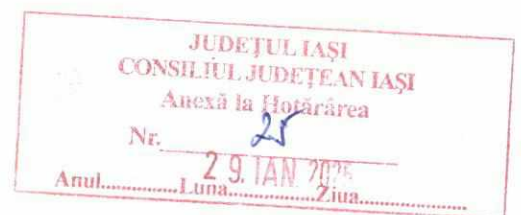 JUDEȚUL IAȘI
CONSILIUL JUDEȚEAN IAȘI
Anexă la Hotărârea
Nr. 25
29. IAN.
Anul...............Luna...............Ziua...................